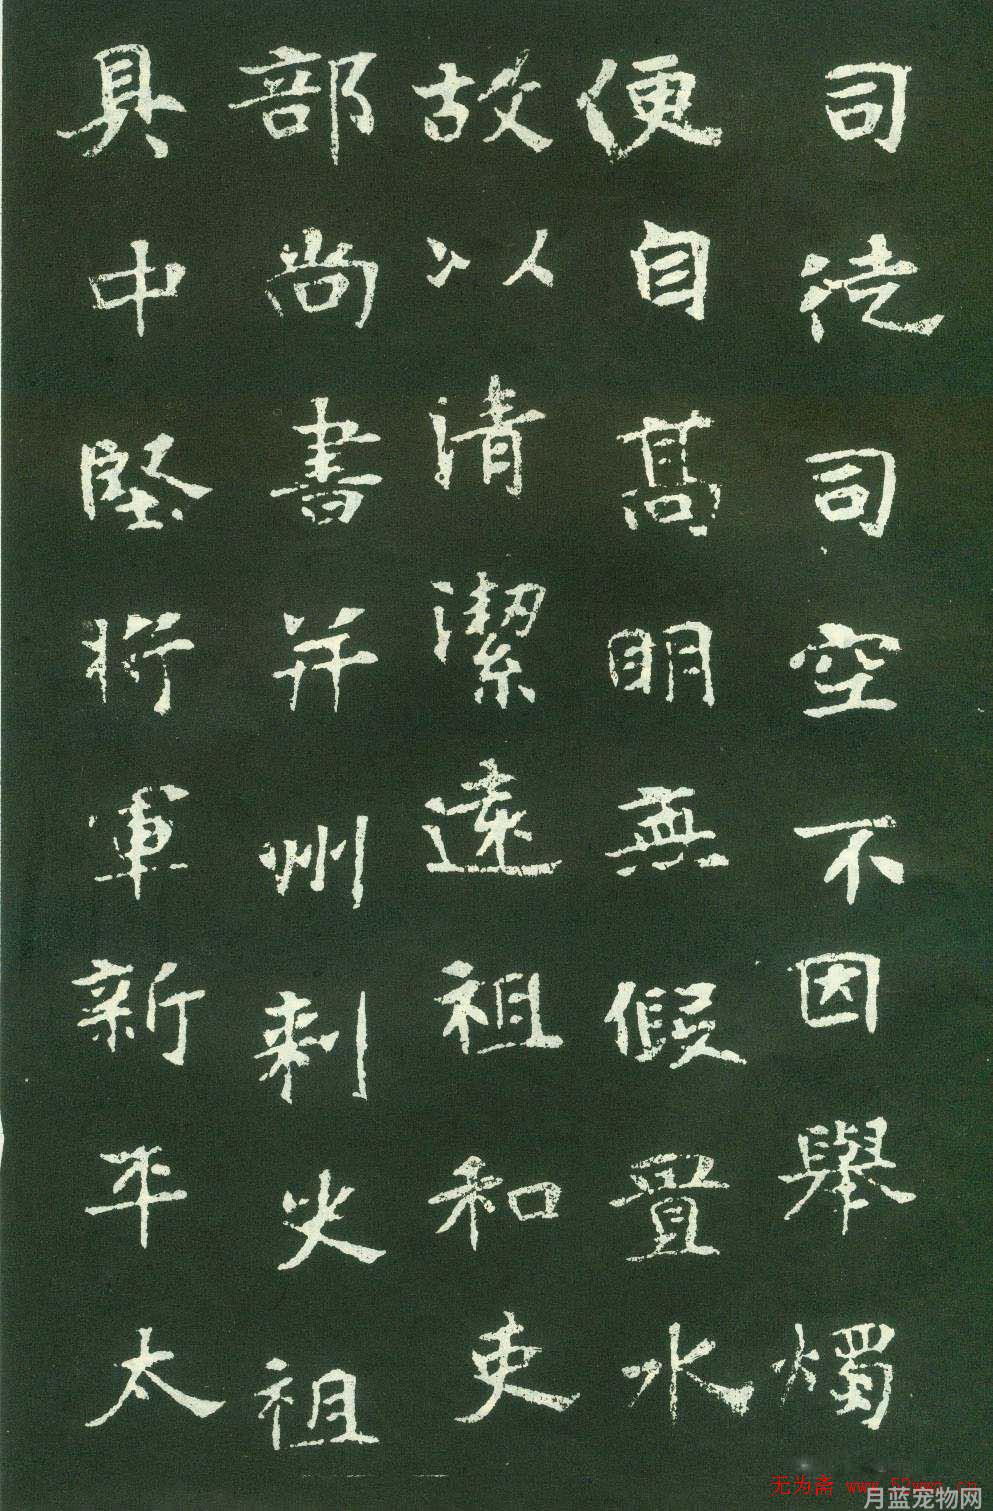 司徒司空不因舉燭
便自髙明無假置水
故以清潔遠祖和吏
部尚書并州刺史祖
具中堅將軍新平太
无为斋
月蓝宠物网